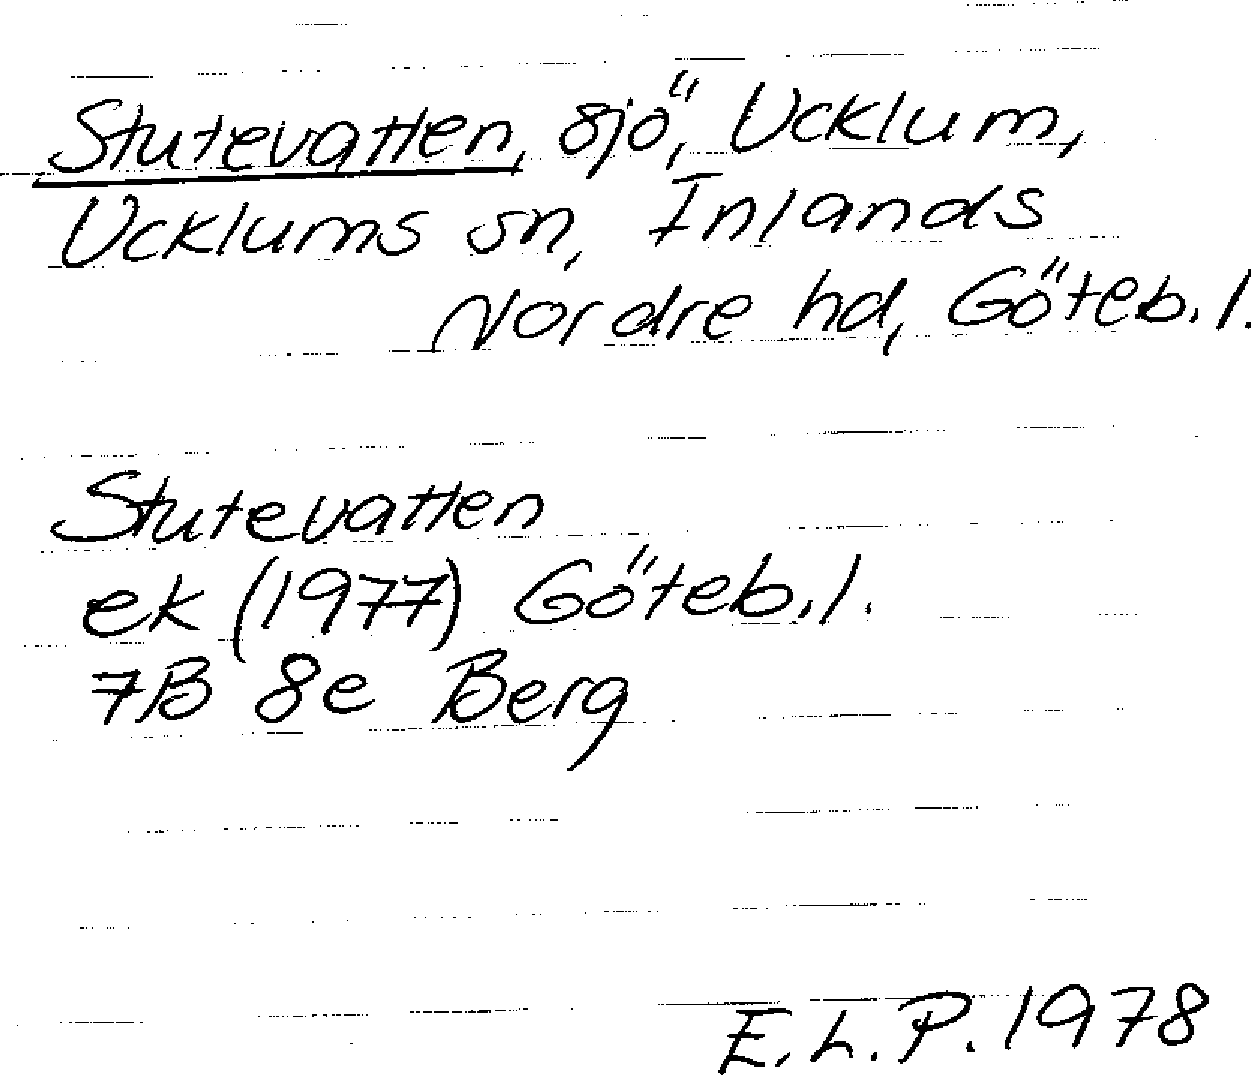 Stutevatten, sjö, Ucklum,
Ucklums sn, Inlands
Nordre hd, Göteb. l.
Stutevatten
ek (1977) Göteb. l.
7B 8e Berg
E. L. P. 1978